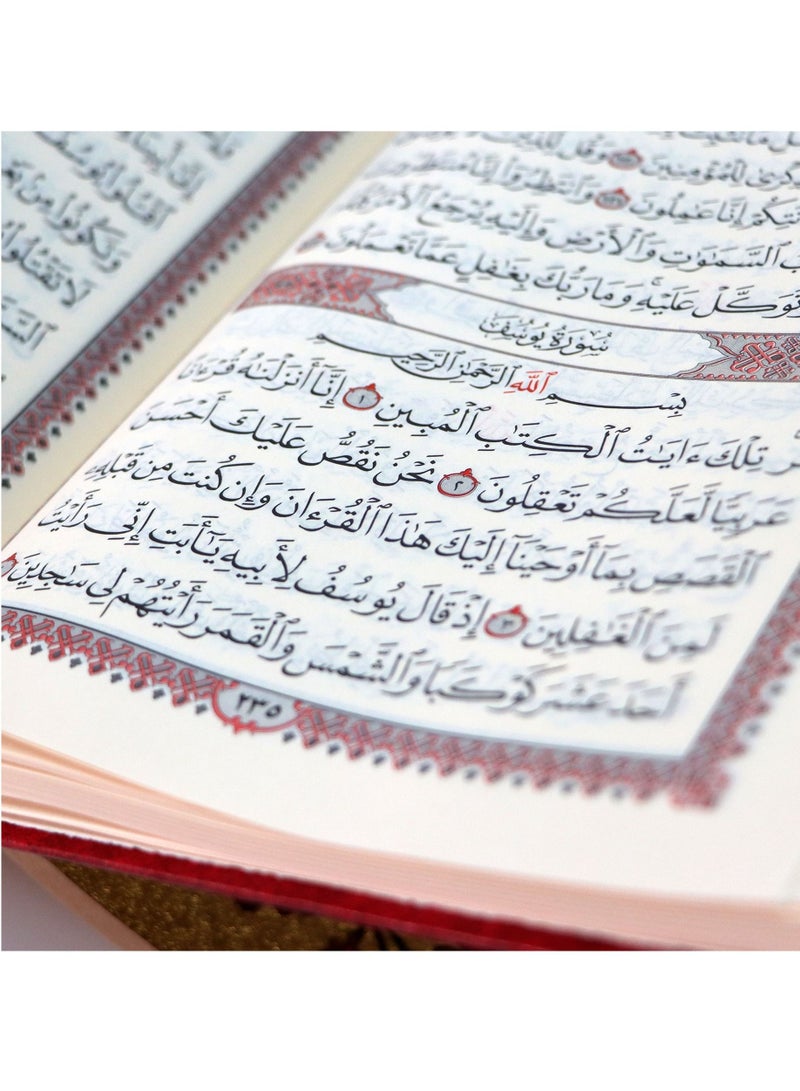 لِلْمُؤْمِنِينَ ١٢٠ وَقُل لِّلَّذِينَ
إِنَّا عَٰمِلُونَ ١٢١ وَٱنتَظِرُوٓا۟ إِنَّا مُنتَظِرُونَ
ٱلسَّمَٰوَٰتِ وَٱلْأَرْضِ وَإِلَيْهِ يُرْجَعُ ٱلْأَمْرُ
وَتَوَكَّلْ عَلَيْهِ وَمَا رَبُّكَ بِغَٰفِلٍ عَمَّا تَعْمَلُونَ
سُورَةُ يُوسُفَ
بِسْمِ ٱللَّهِ ٱلرَّحْمَٰنِ ٱلرَّحِيمِ
تِلْكَ ءَايَٰتُ ٱلْكِتَٰبِ ٱلْمُبِينِ ١ إِنَّآ أَنزَلْنَٰهُ قُرْءَٰنًا
عَرَبِيًّا لَّعَلَّكُمْ تَعْقِلُونَ ٢ نَحْنُ نَقُصُّ عَلَيْكَ أَحْسَنَ
ٱلْقَصَصِ بِمَآ أَوْحَيْنَآ إِلَيْكَ هَٰذَا ٱلْقُرْءَانَ وَإِن كُنتَ مِن قَبْلِهِۦ
لَمِنَ ٱلْغَٰفِلِينَ ٣ إِذْ قَالَ يُوسُفُ لِأَبِيهِ يَٰٓأَبَتِ إِنِّى رَأَيْتُ
أَحَدَ عَشَرَ كَوْكَبًا وَٱلشَّمْسَ وَٱلْقَمَرَ رَأَيْتُهُمْ لِى سَٰجِدِينَ
٢٣٥
إِنَّ أَبَانَا
ٱقْتُلُوا۟ يُوسُفَ
وَتَكُونُوا۟ مِنۢ
لَا تَقْتُلُوا۟